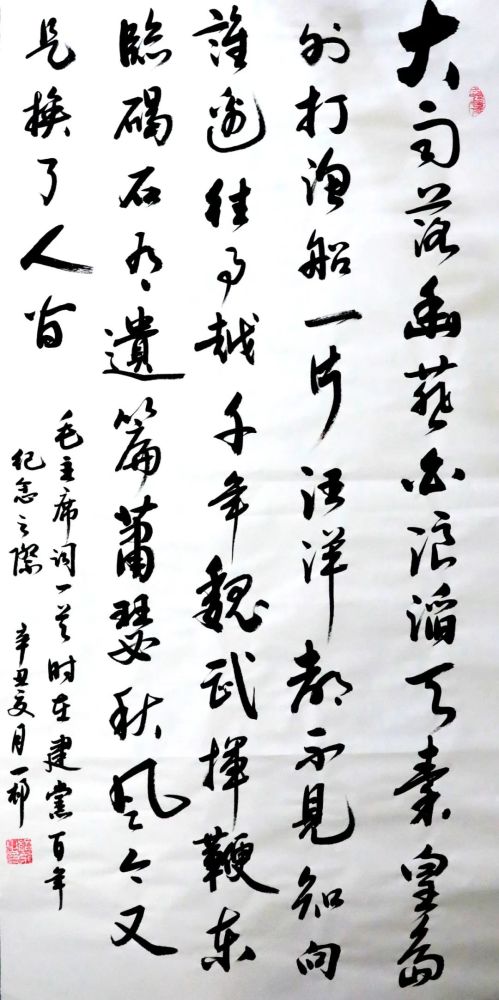 大雨落幽燕白浪滔天秦皇島
外打漁船一片汪洋都不見知向
誰邊往事越千年魏武揮鞭東
臨碣石有遺篇蕭瑟秋風今又
是換了人間
毛主席词一首时在建黨百年
纪念之際 辛丑夏月一邨